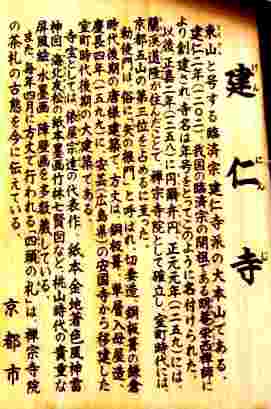 建仁寺
けんにんじ
東山と号する臨済宗建仁寺派の大本山である。
建仁二年(一二〇二)、我国の臨済宗の開祖である明菴栄西禅師に
より創建され寺名は年号をとってこのように名付けられた。
以後正嘉二年(一二五八)に円爾弁円、正元元年(一二五九)には、
蘭渓道隆が住んだことで、禅宗寺院として確立し、室町時代には、
京都五山の第三位を占めるに至った。
勅使門は俗に「矢の根門」と呼ばれ、切妻造、銅板葺の鎌倉
時代後期の唐様建築で、方丈は、銅板葺、単層入母屋造、
慶長四年(一五九九)に安芸(広島県)の安国寺から移建した
室町時代後期の大建築である。
寺宝としては俵屋宗達の代表作、紙本金地著色風神雷
神図、海北友松の紙本墨画竹林七賢図など、桃山時代の貴重な
屏風絵、水墨画、障壁画を多数蔵している。
また、毎年四月に方丈で行われる「四頭の礼」は、禅宗寺院
の茶礼の古態を今に伝えている。
京都市